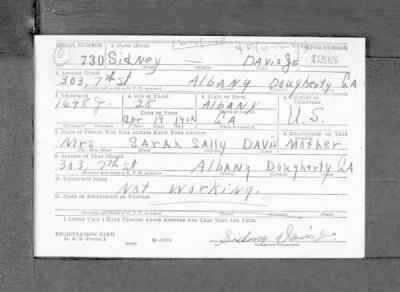 SERIAL NUMBER 1. NAME (Print) ORDER NUMBER
730 Sidney — Davis Jr 1295
2. ADDRESS (Print)
303, 7th St Albany Dougherty GA
3. TELEPHONE 4. AGE IN YEARS 5. PLACE OF BIRTH 6. COUNTRY OF CITIZENSHIP
1648 J. 28 Albany
DATE OF BIRTH
Apr 19 1912 GA U.S.
7. NAME OF PERSON WHO WILL ALWAYS KNOW YOUR ADDRESS 8. RELATIONSHIP OF THAT PERSON
Mrs. Sarah Sally Davis Mother
9. ADDRESS OF THAT PERSON
303, 7th St Albany Dougherty GA
10. EMPLOYER'S NAME
Not Working.
11. PLACE OF EMPLOYMENT OR BUSINESS
I AFFIRM THAT I HAVE VERIFIED ABOVE ANSWERS AND THAT THEY ARE TRUE.
REGISTRATION CARD
D. S. S. Form 1
Sidney Davis Jr.